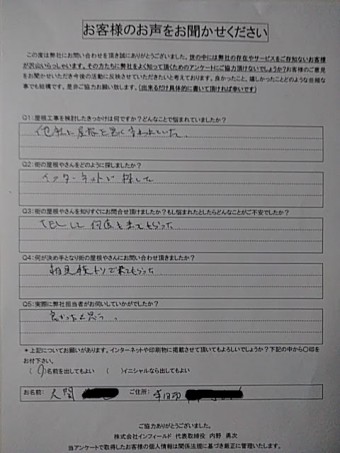 お客様のお声をお聞かせください
この度は弊社にお問い合わせを頂き誠にありがとうございました。世の中には弊社の存在やサービスをご存知ないお客様
が沢山いらっしゃいます。その方たちに弊社をよく知って頂くためのアンケートにご協力頂けないでしょうか？お客様のご意見
をお聞かせいただき今後の活動に反映させていただきたいと考えております。良かったこと、嬉しかったことどのような些細な
事でも結構です。是非ご協力お願い致します。(出来るだけ具体的に書いて頂ければ幸いです)
Q1:屋根工事を検討したきっかけは何ですか？どんなことで悩まれていましたか？
Q2:街の屋根やさんをどのように探しましたか？
インターネットで探した
Q3:街の屋根やさんを知りすぐにお問合せ頂けましたか？もし悩まれたとしたらどんなことがご不安でしたか？
TELして何度も来てもらった
Q4:何が決め手となり街の屋根やさんにお問い合わせ頂きましたか？
Q5:実際に弊社担当者がお伺いしていかがでしたか？
良かったと思う。
＊上記についてお願いがあります。インターネットや印刷物に掲載させて頂いてもよろしいでしょうか？下記の中から〇印を
お付け下さい。
( )名前を出してもよい ( )イニシャルなら出してもよい
お名前: ご住所:
ご協力ありがとうございました。
株式会社インフィールド 代表取締役 内野 勇次
当アンケートで取得したお客様の個人情報は関係法理に基づき厳正に管理いたします。